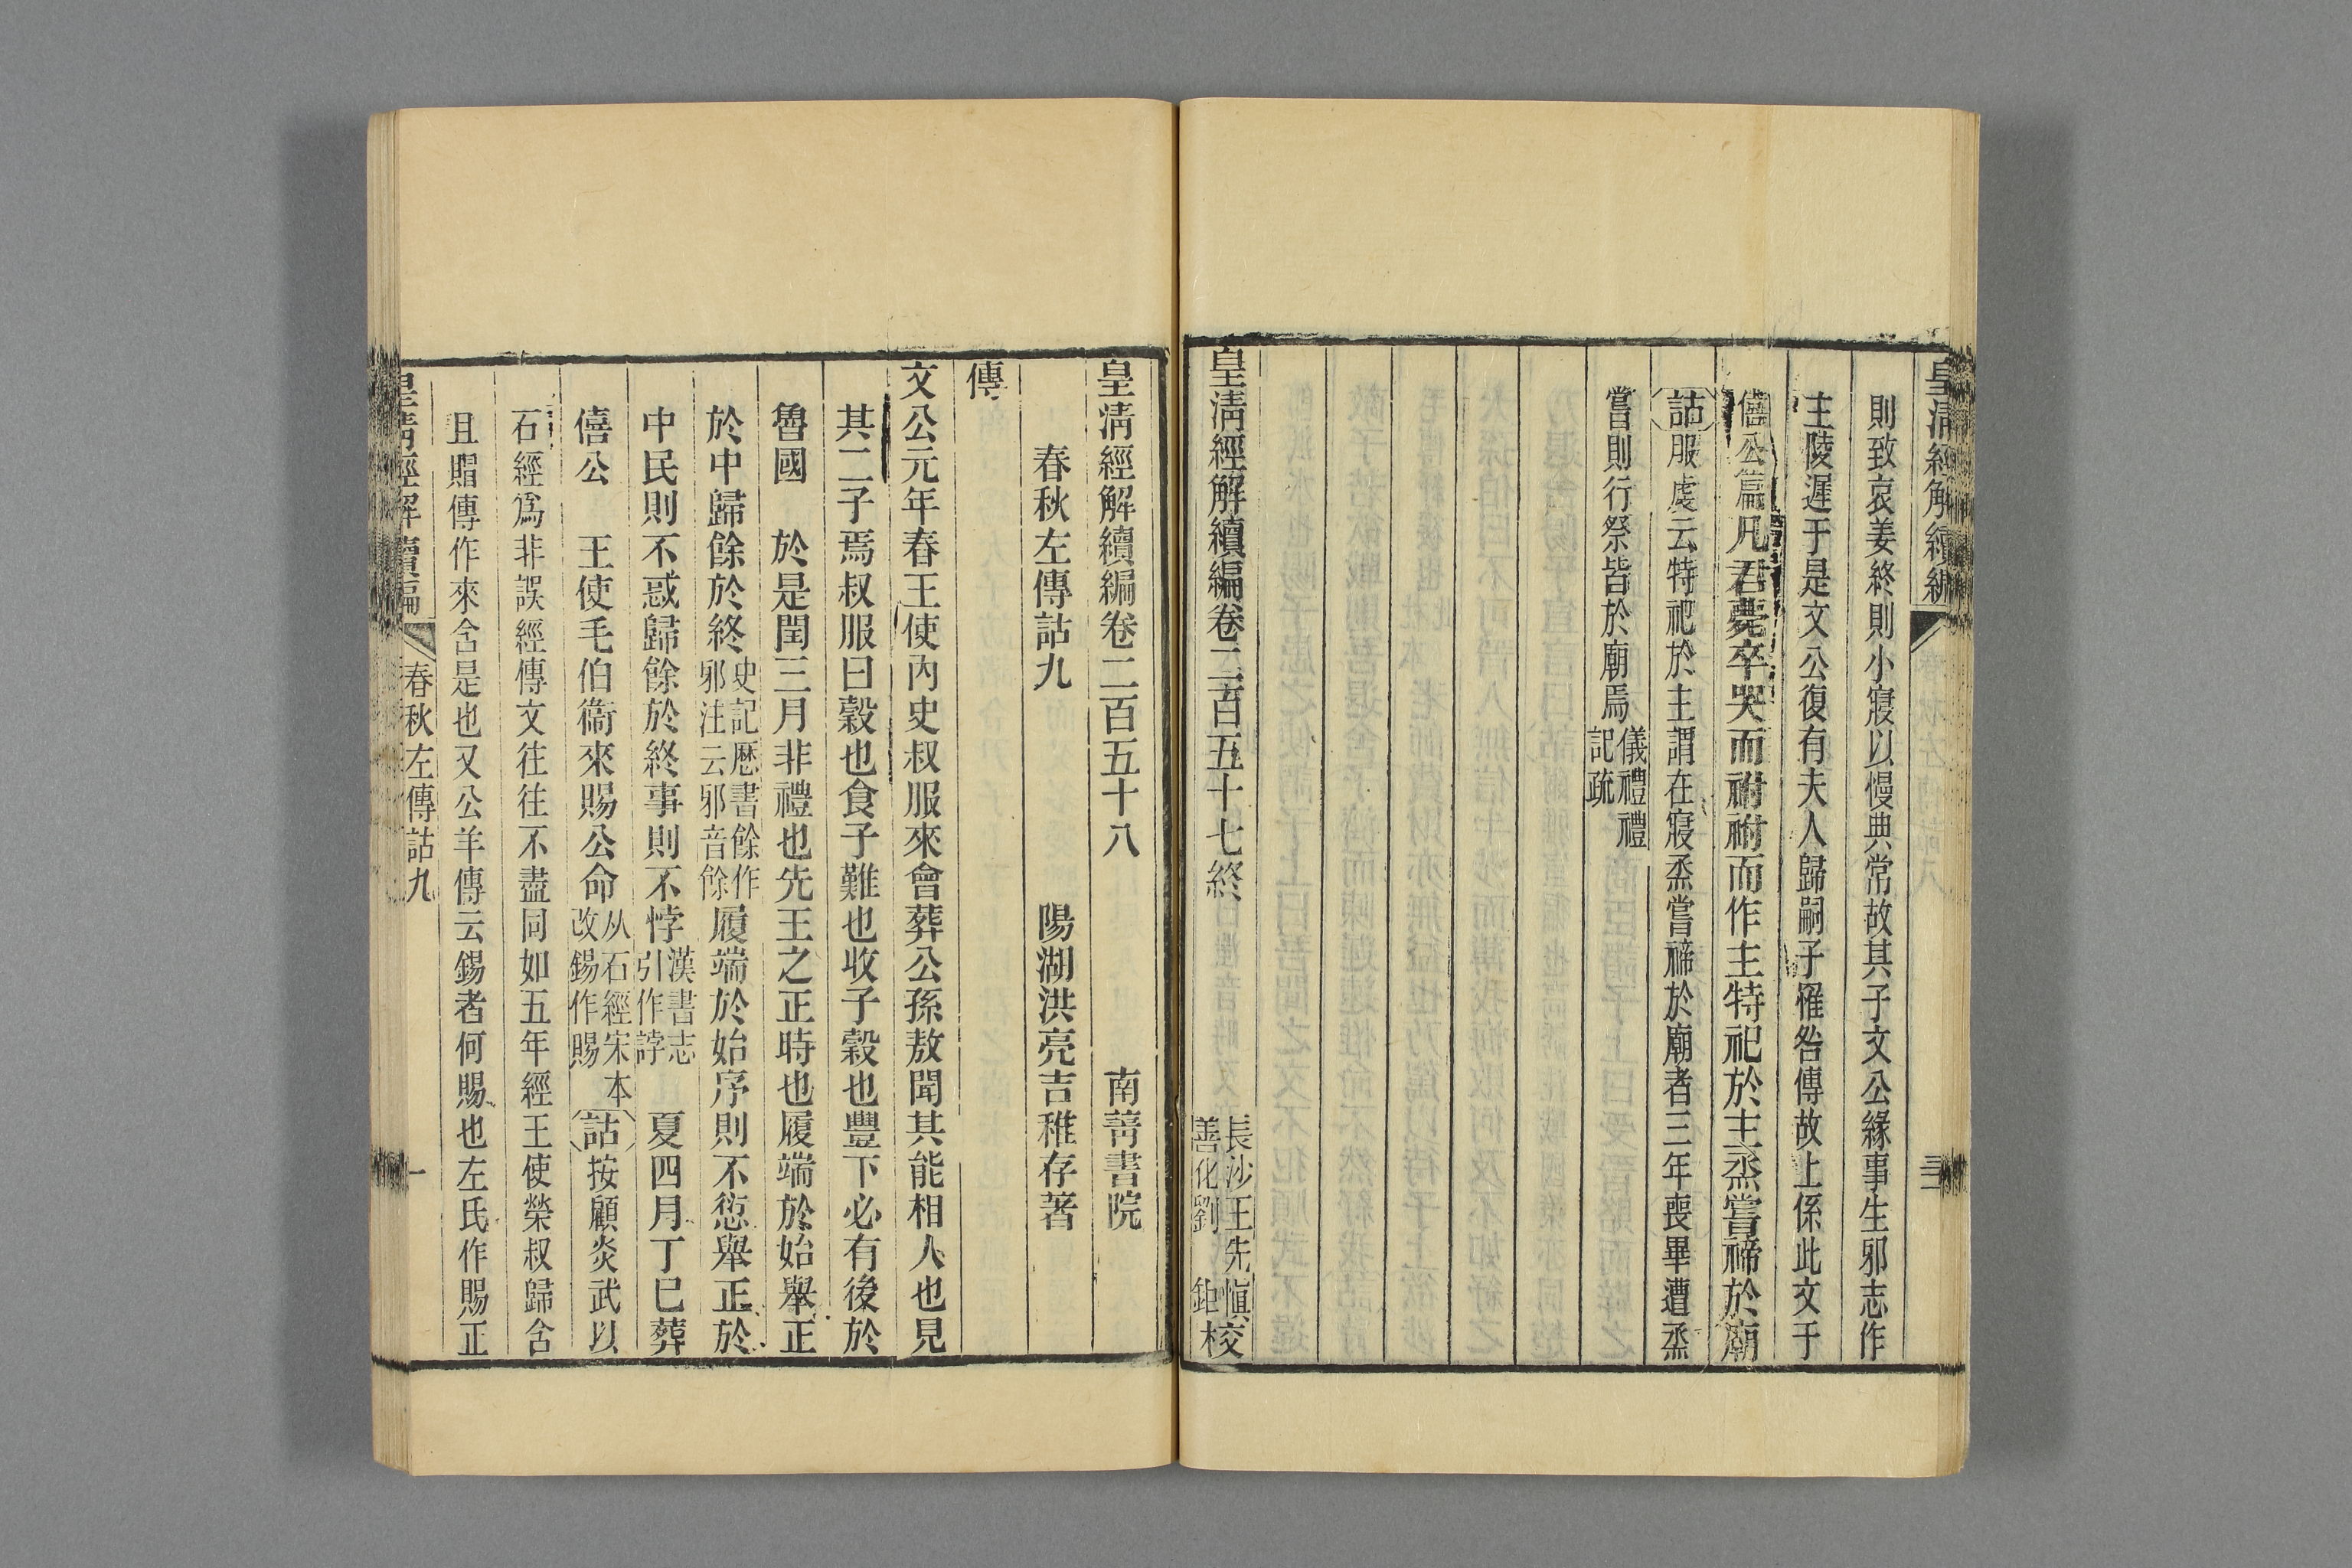 皇清經解續編
三二
則致哀姜終則小寢以慢典常故其子文公緣事生邪志作
主陵遲于是文公復有夫人歸嗣子罹咎傳故上係此文于
僖公篇凡君薨卒哭而祔祔而作主特祀於主烝嘗禘於廟
詁服虔云特祀於主謂在寢烝嘗禘於廟者三年喪畢遭烝
嘗則行祭皆於廟焉儀禮禮記疏
皇清經解續編卷二百五十七終 長沙王先慎善化劉鉅校
皇清經解續編卷二百五十八 南菁書院
春秋左傳詁九 陽湖洪亮吉稚存著
傳
文公元年春王使內史叔服來會葬公孫敖聞其能相人也見
其二子焉叔服曰穀也食子難也收子穀也豐下必有後於
魯國 於是閏三月非禮也先王之正時也履端於始舉正
於中歸餘於終史記歷書餘作邪注云邪音餘履端於始序則不愆舉正於
中民則不惑歸餘於終事則不悖漢書志引作誖 夏四月丁巳葬
僖公 王使毛伯衞來賜公命从石經宋本改錫作賜詁按顧炎武以
石經爲非誤經傳文往往不盡同如五年經王使榮叔歸含
且賵傳作來含是也又公羊傳云錫者何賜也左氏作賜正
皇清經解續編 春秋左傳詁九 一